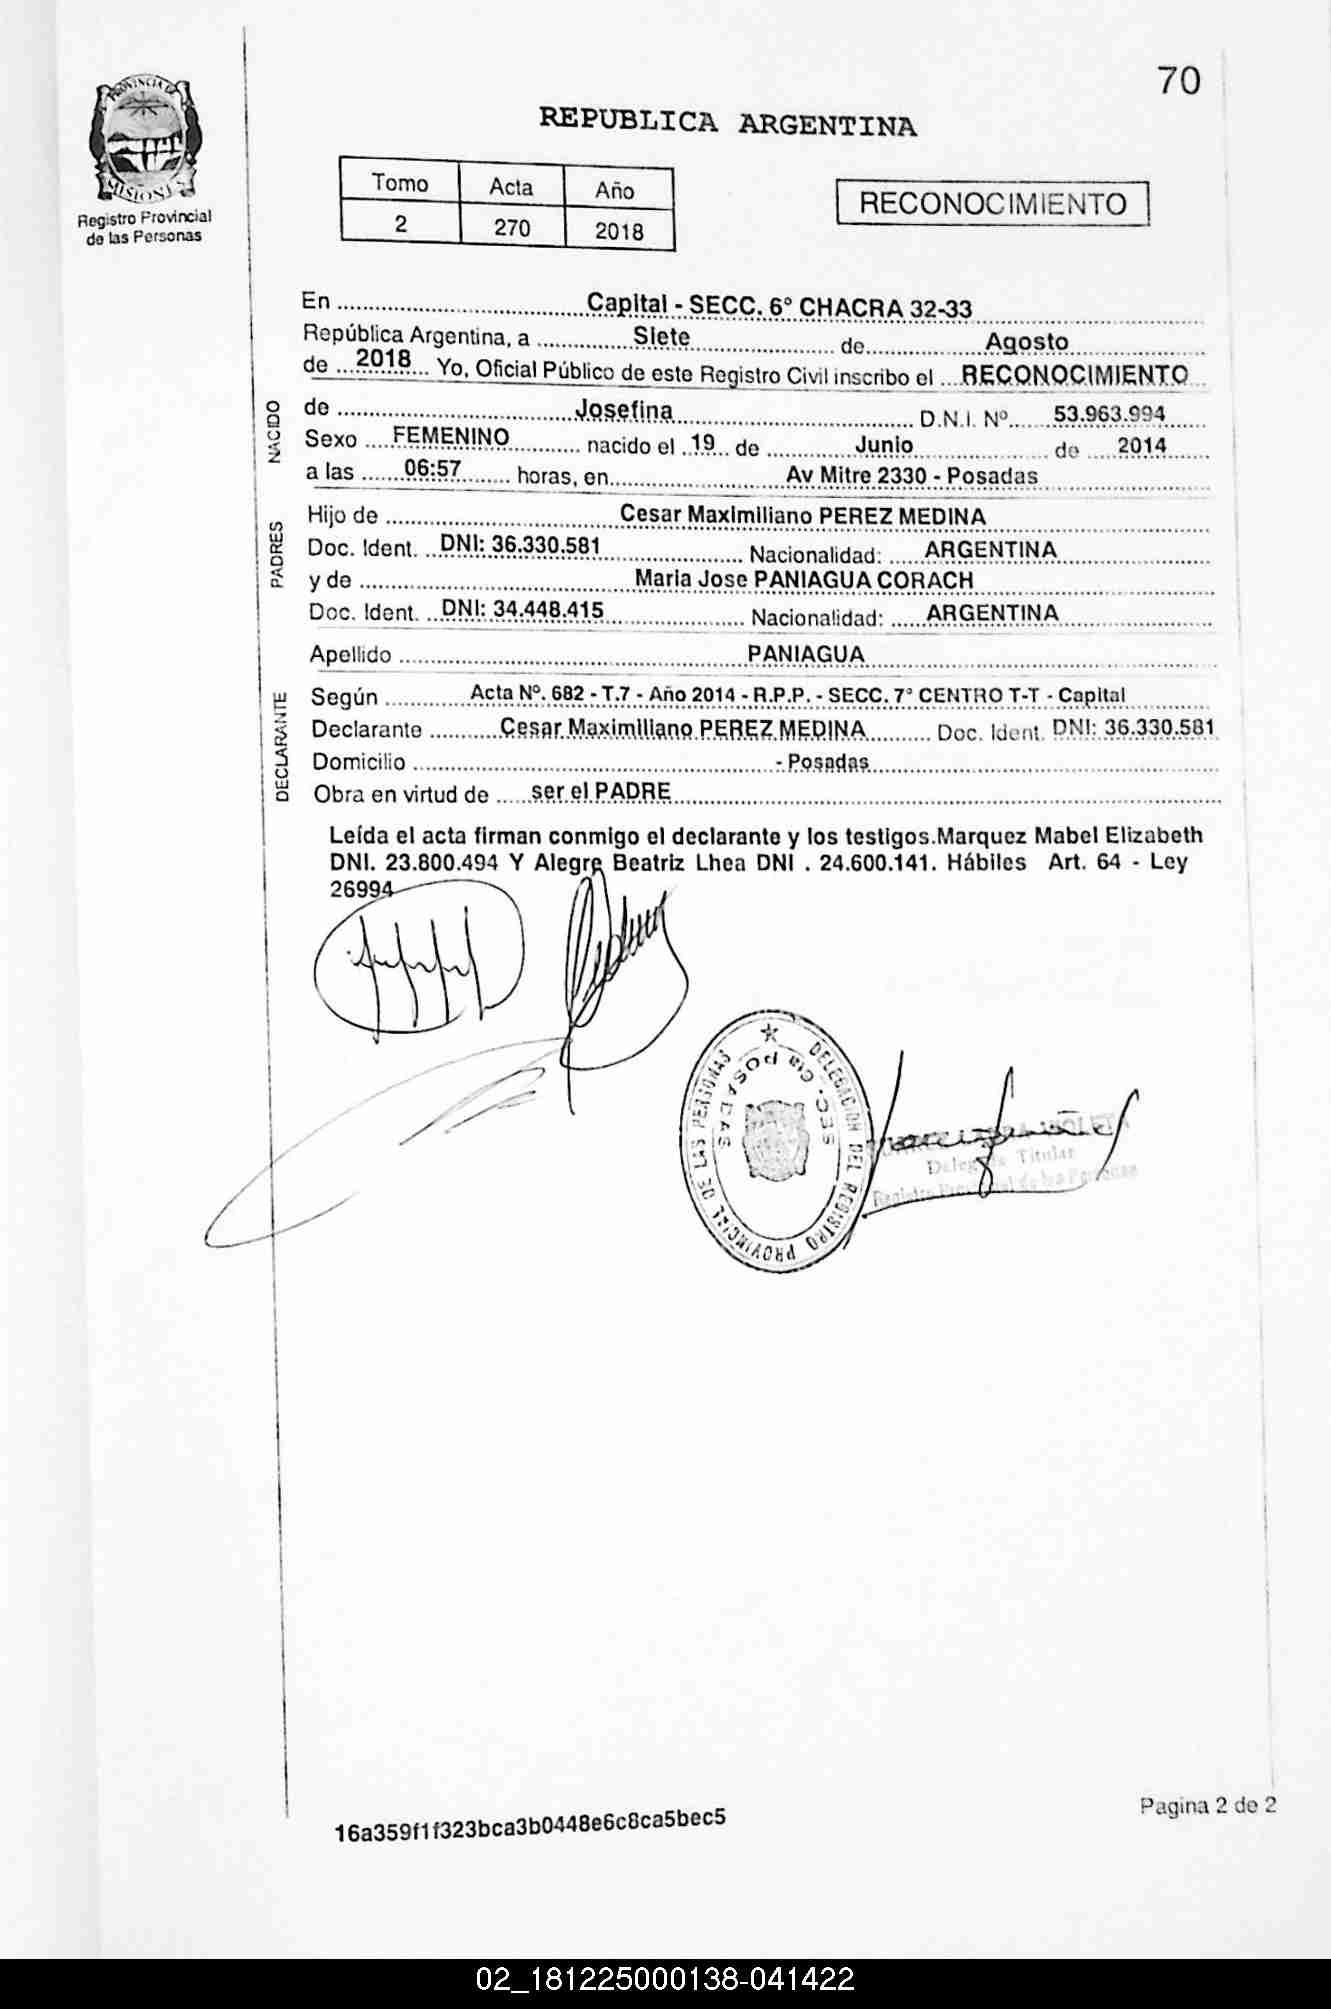 70
PROVINCIA DE
MISIONES
Registro Provincial
de las Personas
REPUBLICA ARGENTINA
Tomo Acta Año
2 270 2018
RECONOCIMIENTO
En Capital - SECC. 6º CHACRA 32-33
República Argentina, a Siete de Agosto
de 2018 Yo, Oficial Público de este Registro Civil inscribo el RECONOCIMIENTO
NACIDO
de Josefina D.N.I. Nº 53.963.994
Sexo FEMENINO nacido el 19 de Junio de 2014
a las 06:57 horas, en Av Mitre 2330 - Posadas
PADRES
Hijo de Cesar Maximiliano PEREZ MEDINA
Doc. Ident. DNI: 36.330.581 Nacionalidad: ARGENTINA
y de Maria Jose PANIAGUA CORACH
Doc. Ident. DNI: 34.448.415 Nacionalidad: ARGENTINA
Apellido PANIAGUA
DECLARANTE
Según Acta Nº. 682 - T.7 - Año 2014 - R.P.P. - SECC. 7º CENTRO T-T - Capital
Declarante Cesar Maximiliano PEREZ MEDINA Doc. Ident. DNI: 36.330.581
Domicilio - Posadas
Obra en virtud de ser el PADRE
Leída el acta firman conmigo el declarante y los testigos.Marquez Mabel Elizabeth
DNI. 23.800.494 Y Alegre Beatriz Lhea DNI . 24.600.141. Hábiles Art. 64 - Ley
26994
DELEGACION DEL REGISTRO PROVINCIAL DE LAS PERSONAS
SEC. 6ta POSADAS
VIOLETA
Titular
Registro Provincial de las Personas
16a359f1f323bca3b0448e6c8ca5bec5
Pagina 2 de 2
02_181225000138-041422